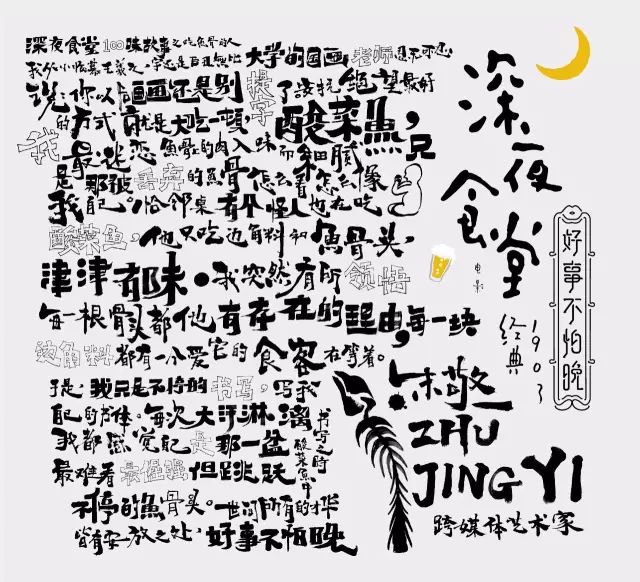 深夜食堂100味故事之吃魚骨的人
大学的国画老师
说:你以后画画还是别提字了
绝望最好
的方式就是大吃一顿,酸菜魚,
我最迷恋魚骨的肉入味而细腻,只
是那被丢弃的魚骨怎么看怎么像
我自己。恰邻桌有个怪人也在吃
酸菜鱼,他只吃边角料和魚骨头,
津津都味。我突然有所领悟
每一根骨头都他有存在的理由,每一块
边角料都有一个爱它的食客在等着。
于是,我只是不停的书写,写我
自己的字体。每次大汗淋漓
书写之时
我都感觉自己是那一盆
酸菜魚中
最难看最倔强但跳跃
不停的魚骨头。世间所有的才华
皆有安放之处,好事不怕晚
深夜食堂
电影
经典1903
好事不怕晚
朱敬一
ZHU
JING YI
跨媒体艺术家